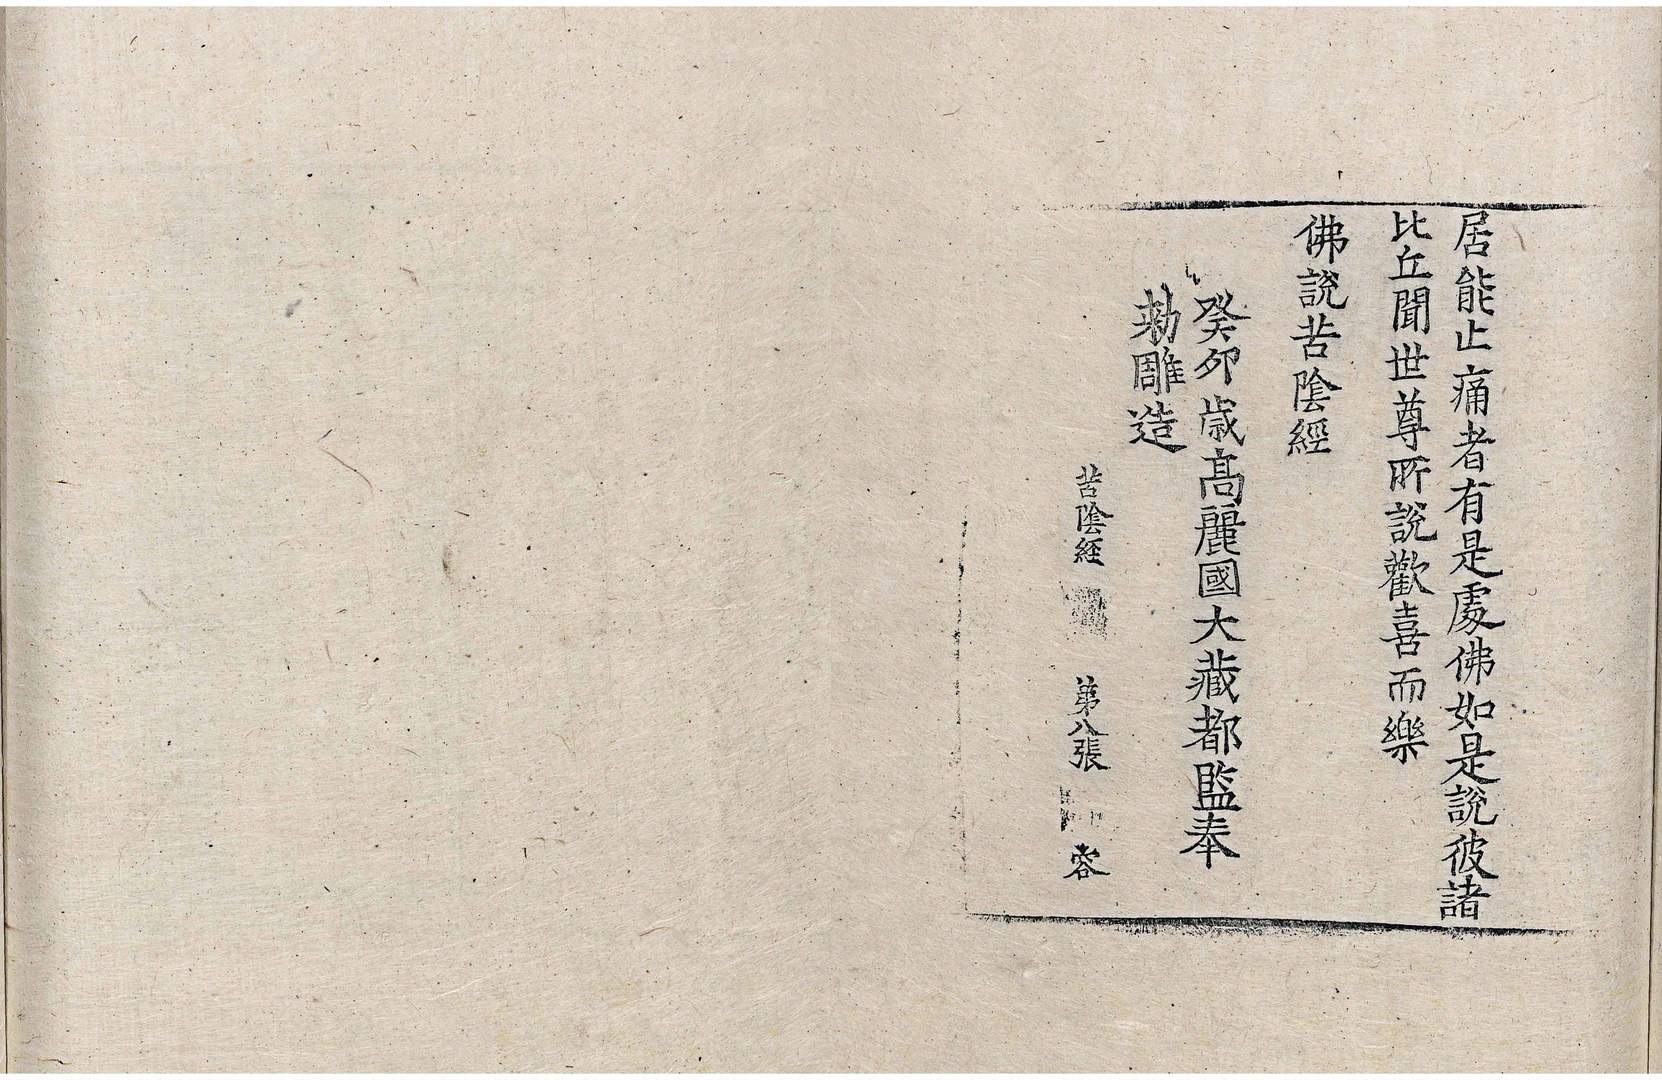 居能止痛者有是處佛如是說彼諸
比丘聞世尊所說歡喜而樂
佛說苦陰經
癸卯歲高麗國大藏都監奉
勅雕造
苦陰經 第八張 容